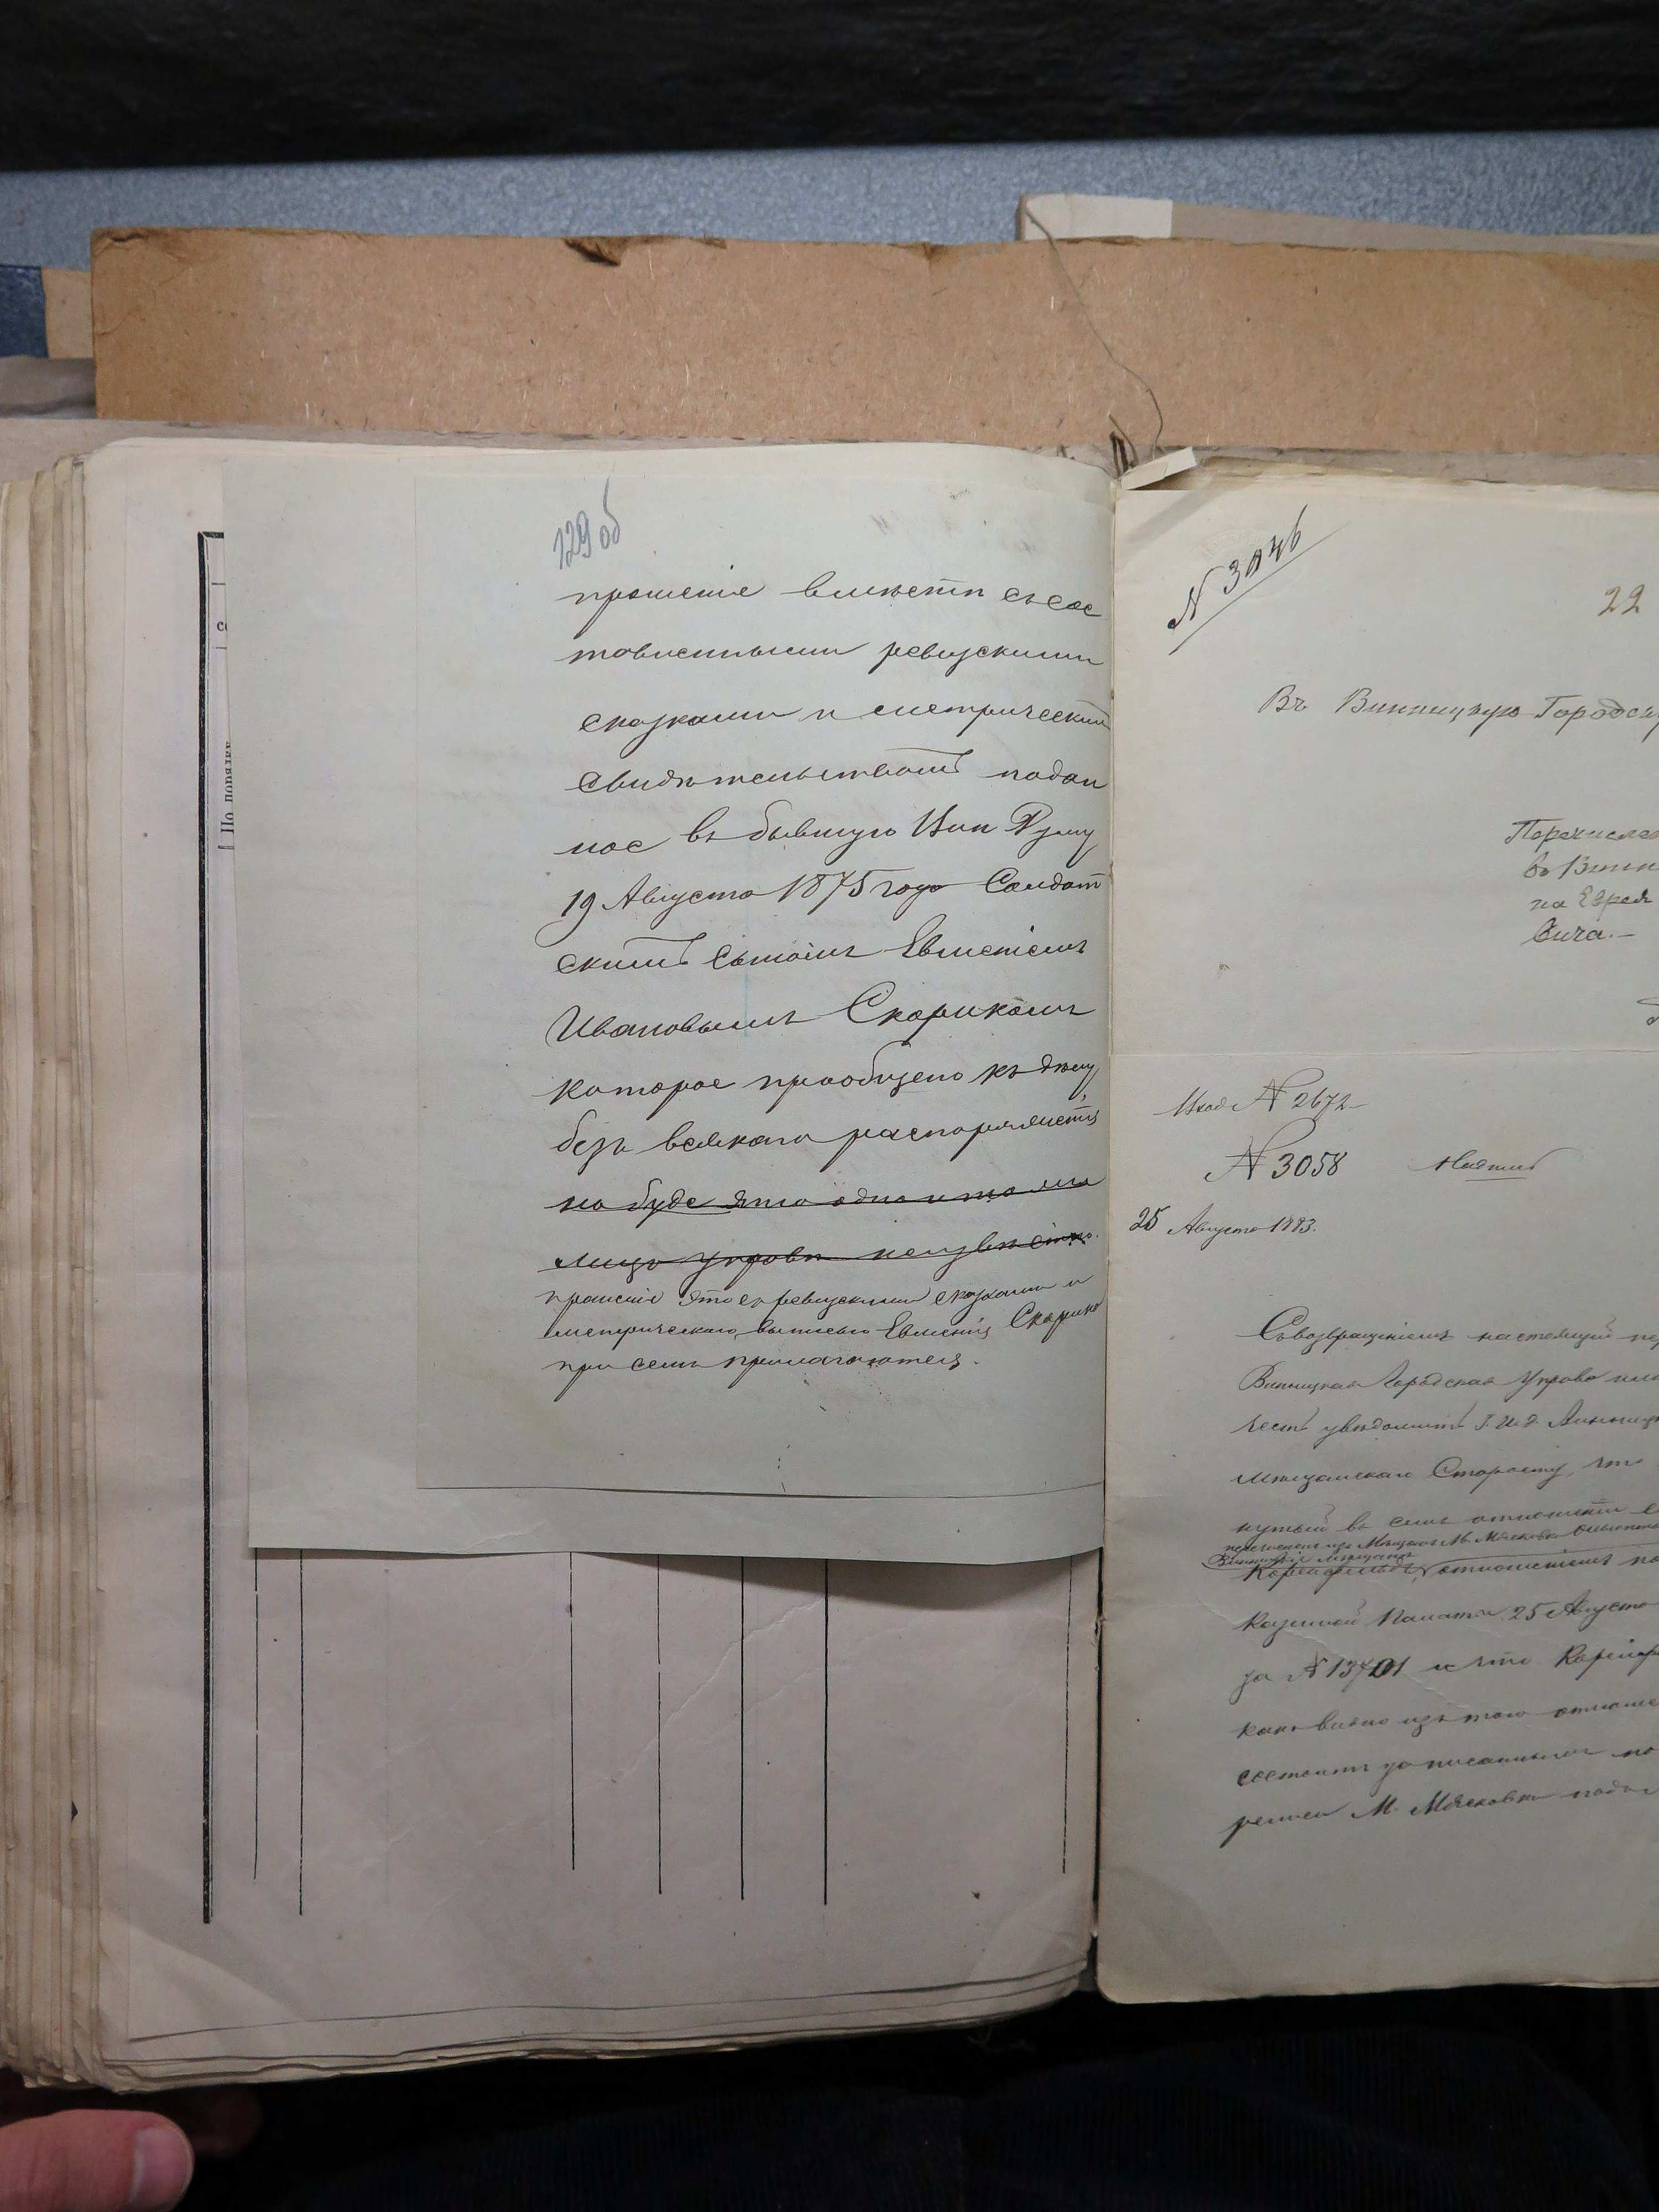 129 об
прошеніе вместѣ съ сос
тавленными ревизскими
сказками и метрический
свидѣтельствомъ подан
ное въ бывшую Вин Думу
19 Августа 1875 года Солдат
скимъ сыномъ Евметіемъ
Ивановымъ Скорикомъ
которое приобщено къ дѣлу,
безъ всякаго распоряженія,
но буде это одно и то же
лицо Управѣ неизвѣстно.
прошеніе это съ ревизскими сказками и
метрическою выписью Евметія Скорика
при семъ прилагаются.
По порядку
N 3046
22
Въ Винницкую Городску
Перечислен
въ Винн
на Еврея
вича.–
Вход N 2672–
N 3058
25 Августа 1883.
Съ возвращеніемъ настоящей пер
Винницкая Городская Управа име
честь увѣдомить Г. И. д. Винниц
Мѣщанскаго Старосту, что
нутый въ семъ отношеніи
перечисленъ изъ Мѣщанъ М. Мясковки
Винницкіе мѣщане
отношеніемъ
Казенной Палаты 25 Августа
за N 13701 и что
какъ видно изъ того отноше
состоитъ записаннымъ по
М. Мясковки подъ